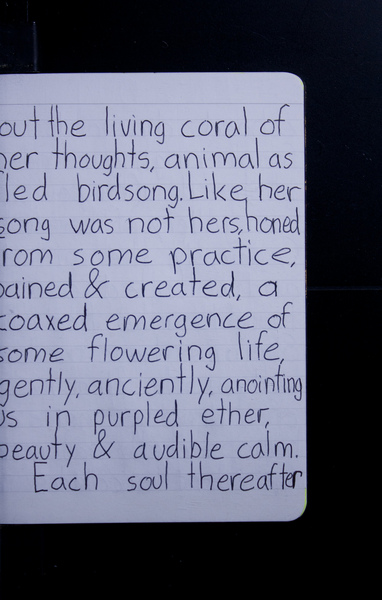 out the living coral of
her thoughts, animal as
led birdsong. Like her
song was not hers, honed
rom some practice,
pained & created, a
coaxed emergence of
some flowering life,
gently, anciently, anointing
us in purpled ether,
beauty & audible calm.
Each soul thereafter